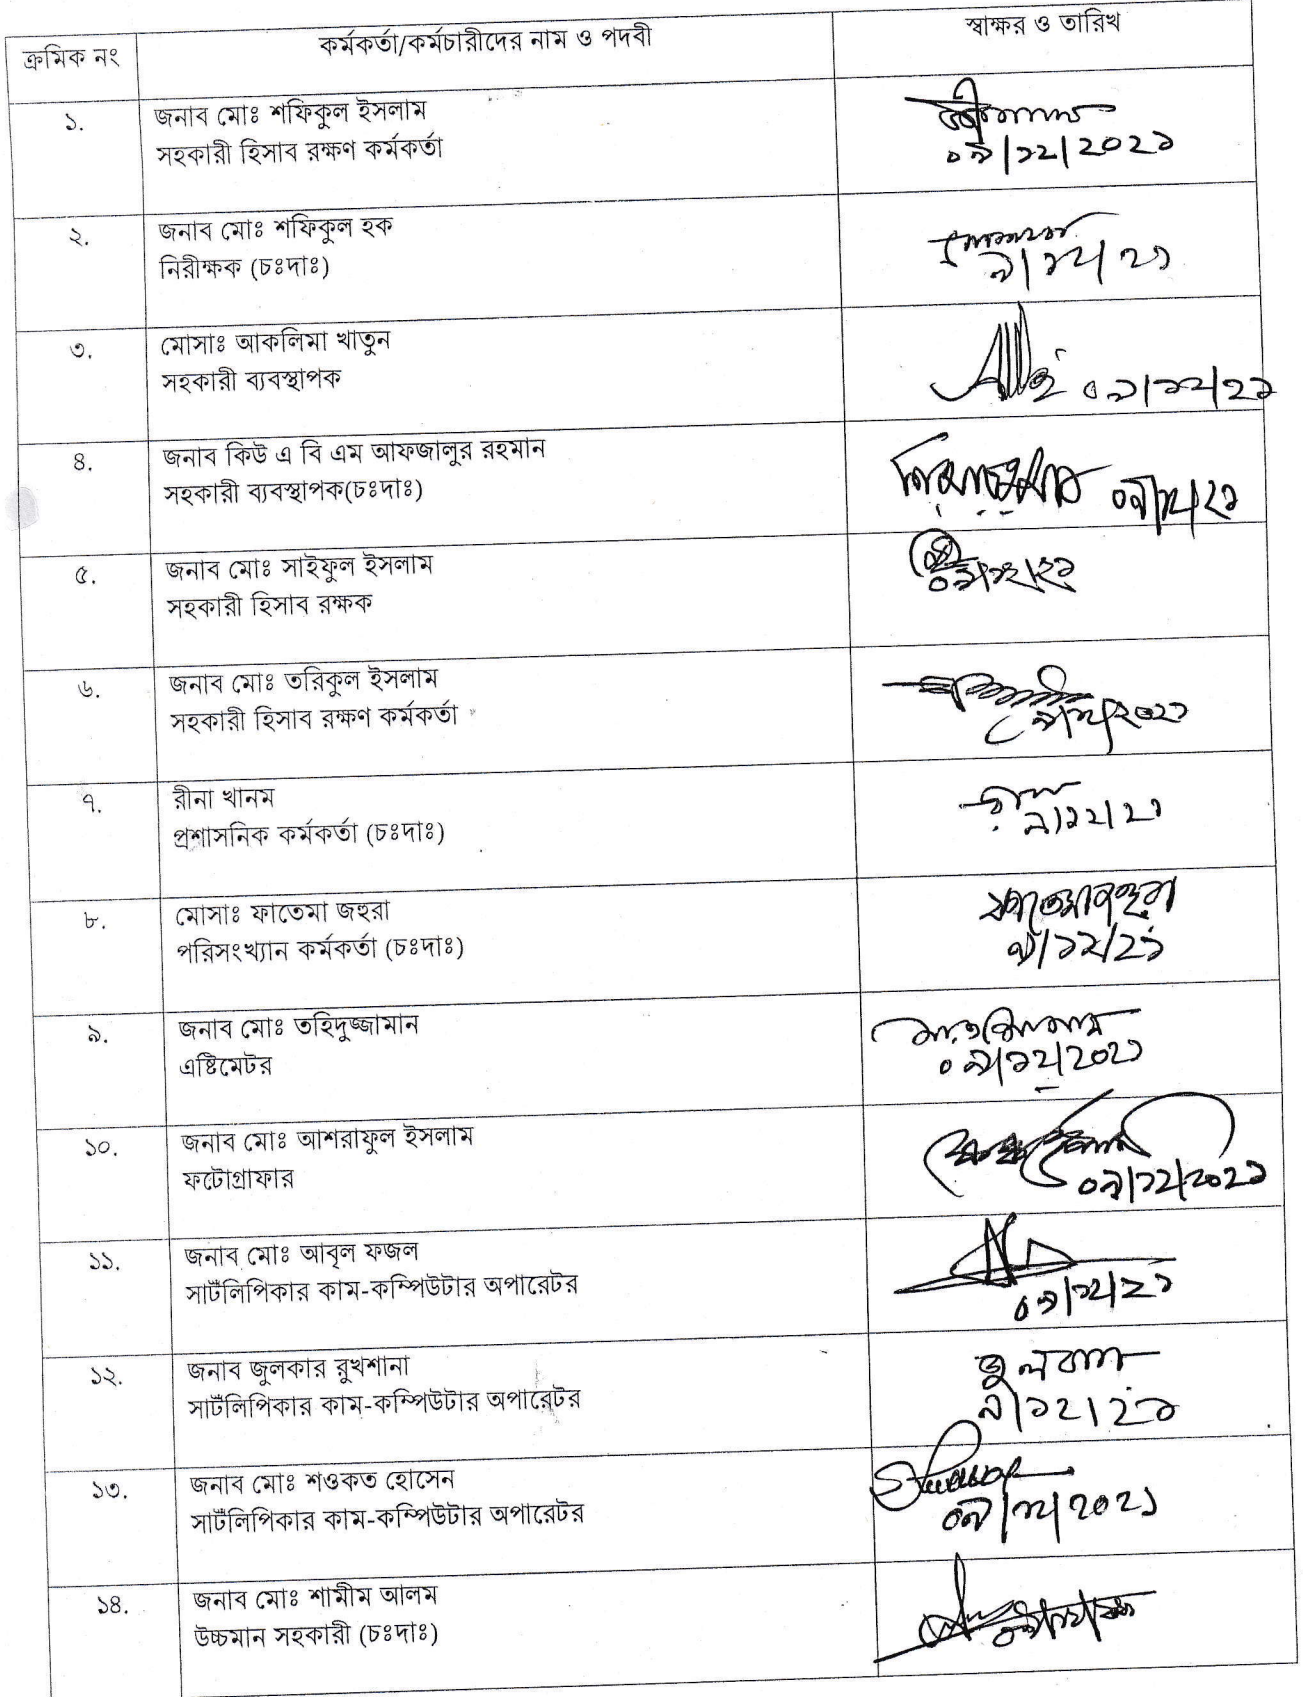 ক্রমিক নং
কর্মকর্তা/কর্মচারীদের নাম ও পদবী
স্বাক্ষর ও তারিখ
১.
জনাব মোঃ শফিকুল ইসলাম
সহকারী হিসাব রক্ষণ কর্মকর্তা
০৯/১২/২০২১
২.
জনাব মোঃ শফিকুল হক
নিরীক্ষক (চঃদাঃ)
৯/১২/২১
৩.
মোসাঃ আকলিমা খাতুন
সহকারী ব্যবস্থাপক
০৯/১২/২১
৪.
জনাব কিউ এ বি এম আফজালুর রহমান
সহকারী ব্যবস্থাপক(চঃদাঃ)
০৯/১২/২১
৫.
জনাব মোঃ সাইফুল ইসলাম
সহকারী হিসাব রক্ষক
০৯/১২/২১
৬.
জনাব মোঃ তরিকুল ইসলাম
সহকারী হিসাব রক্ষণ কর্মকর্তা
৯/১২/২০২১
৭.
রীনা খানম
প্রশাসনিক কর্মকর্তা (চঃদাঃ)
৯/১২/২১
৮.
মোসাঃ ফাতেমা জহুরা
পরিসংখ্যান কর্মকর্তা (চঃদাঃ)
ফাতেমা জহুরা
৯/১২/২১
৯.
জনাব মোঃ তহিদুজ্জামান
এষ্টিমেটর
০৯/১২/২০২১
১০.
জনাব মোঃ আশরাফুল ইসলাম
ফটোগ্রাফার
০৯/১২/২০২১
১১.
জনাব মোঃ আবুল ফজল
সাটঁলিপিকার কাম-কম্পিউটার অপারেটর
০৯/১২/২১
১২.
জনাব জুলকার রুখশানা
সাটঁলিপিকার কাম-কম্পিউটার অপারেটর
৯/১২/২১
১৩.
জনাব মোঃ শওকত হোসেন
সাটঁলিপিকার কাম-কম্পিউটার অপারেটর
০৯/১২/২০২১
১৪.
জনাব মোঃ শামীম আলম
উচ্চমান সহকারী (চঃদাঃ)